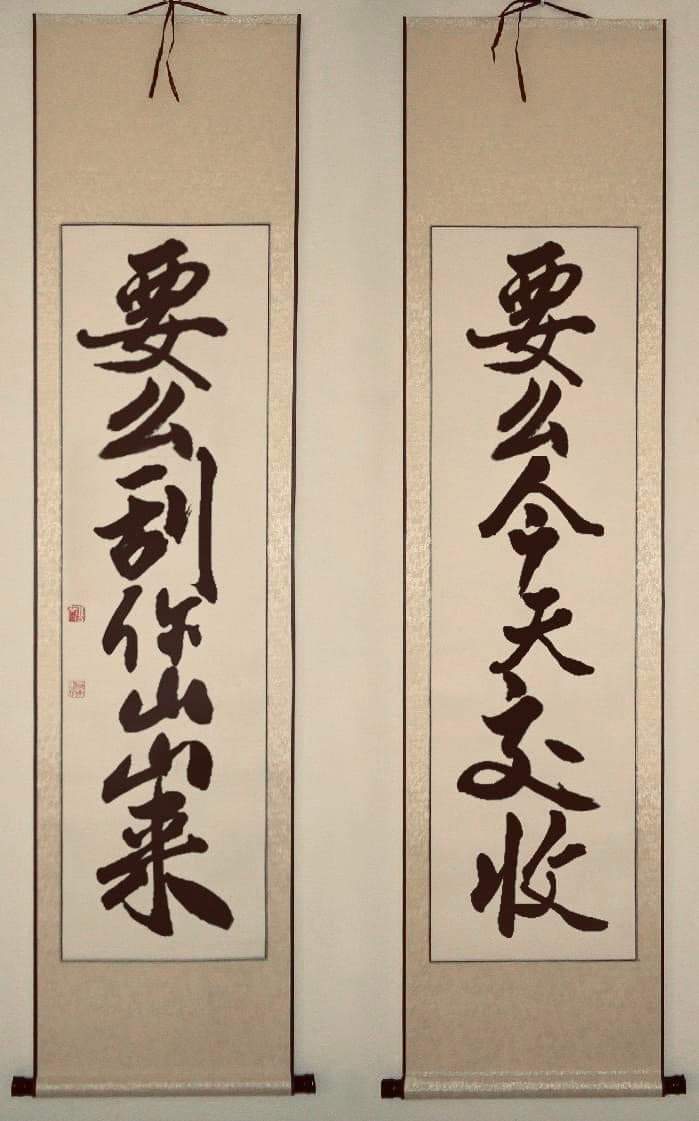 要么今天交收
要么刮你出来